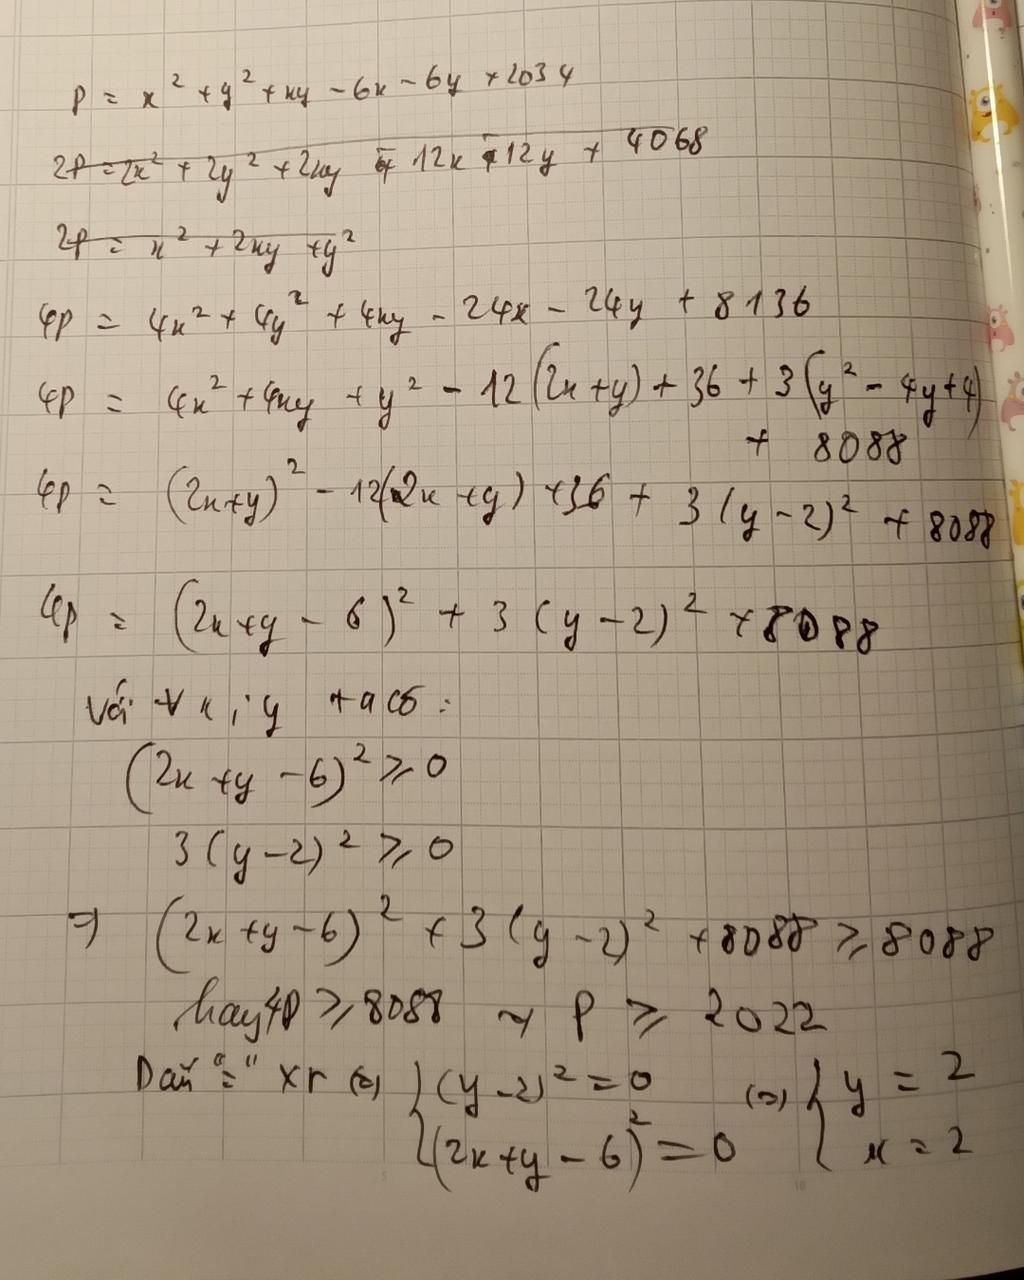 P = x² + y² + xy - 6x - 6y + 2034
2P = 2x² + 2y² + 2xy - 12x - 12y + 4068
2P = x² + 2xy + y²
4P = 4x² + 4y² + 4xy - 24x - 24y + 8136
4P = 4x² + 4xy + y² - 12(2x+y) + 36 + 3(y² - 4y+4)
+ 8088
4P = (2x+y)² - 12(2x+y) + 36 + 3(y-2)² + 8088
4P = (2x+y - 6)² + 3(y-2)² + 8088
Với ∀ x ; y ta có :
(2x+y-6)² ≥ 0
3(y-2)² ≥ 0
=> (2x+y-6)² + 3(y-2)² + 8088 ≥ 8088
hay 4P ≥ 8088 ~> P ≥ 2022
Dấu "=" xr (=) { (y-2)² = 0 (=) { y = 2
(2x+y-6)² = 0 x = 2
5 10